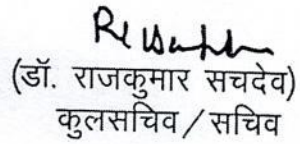 (डॉ. राजकुमार सचदेव)
कुलसचिव / सचिव